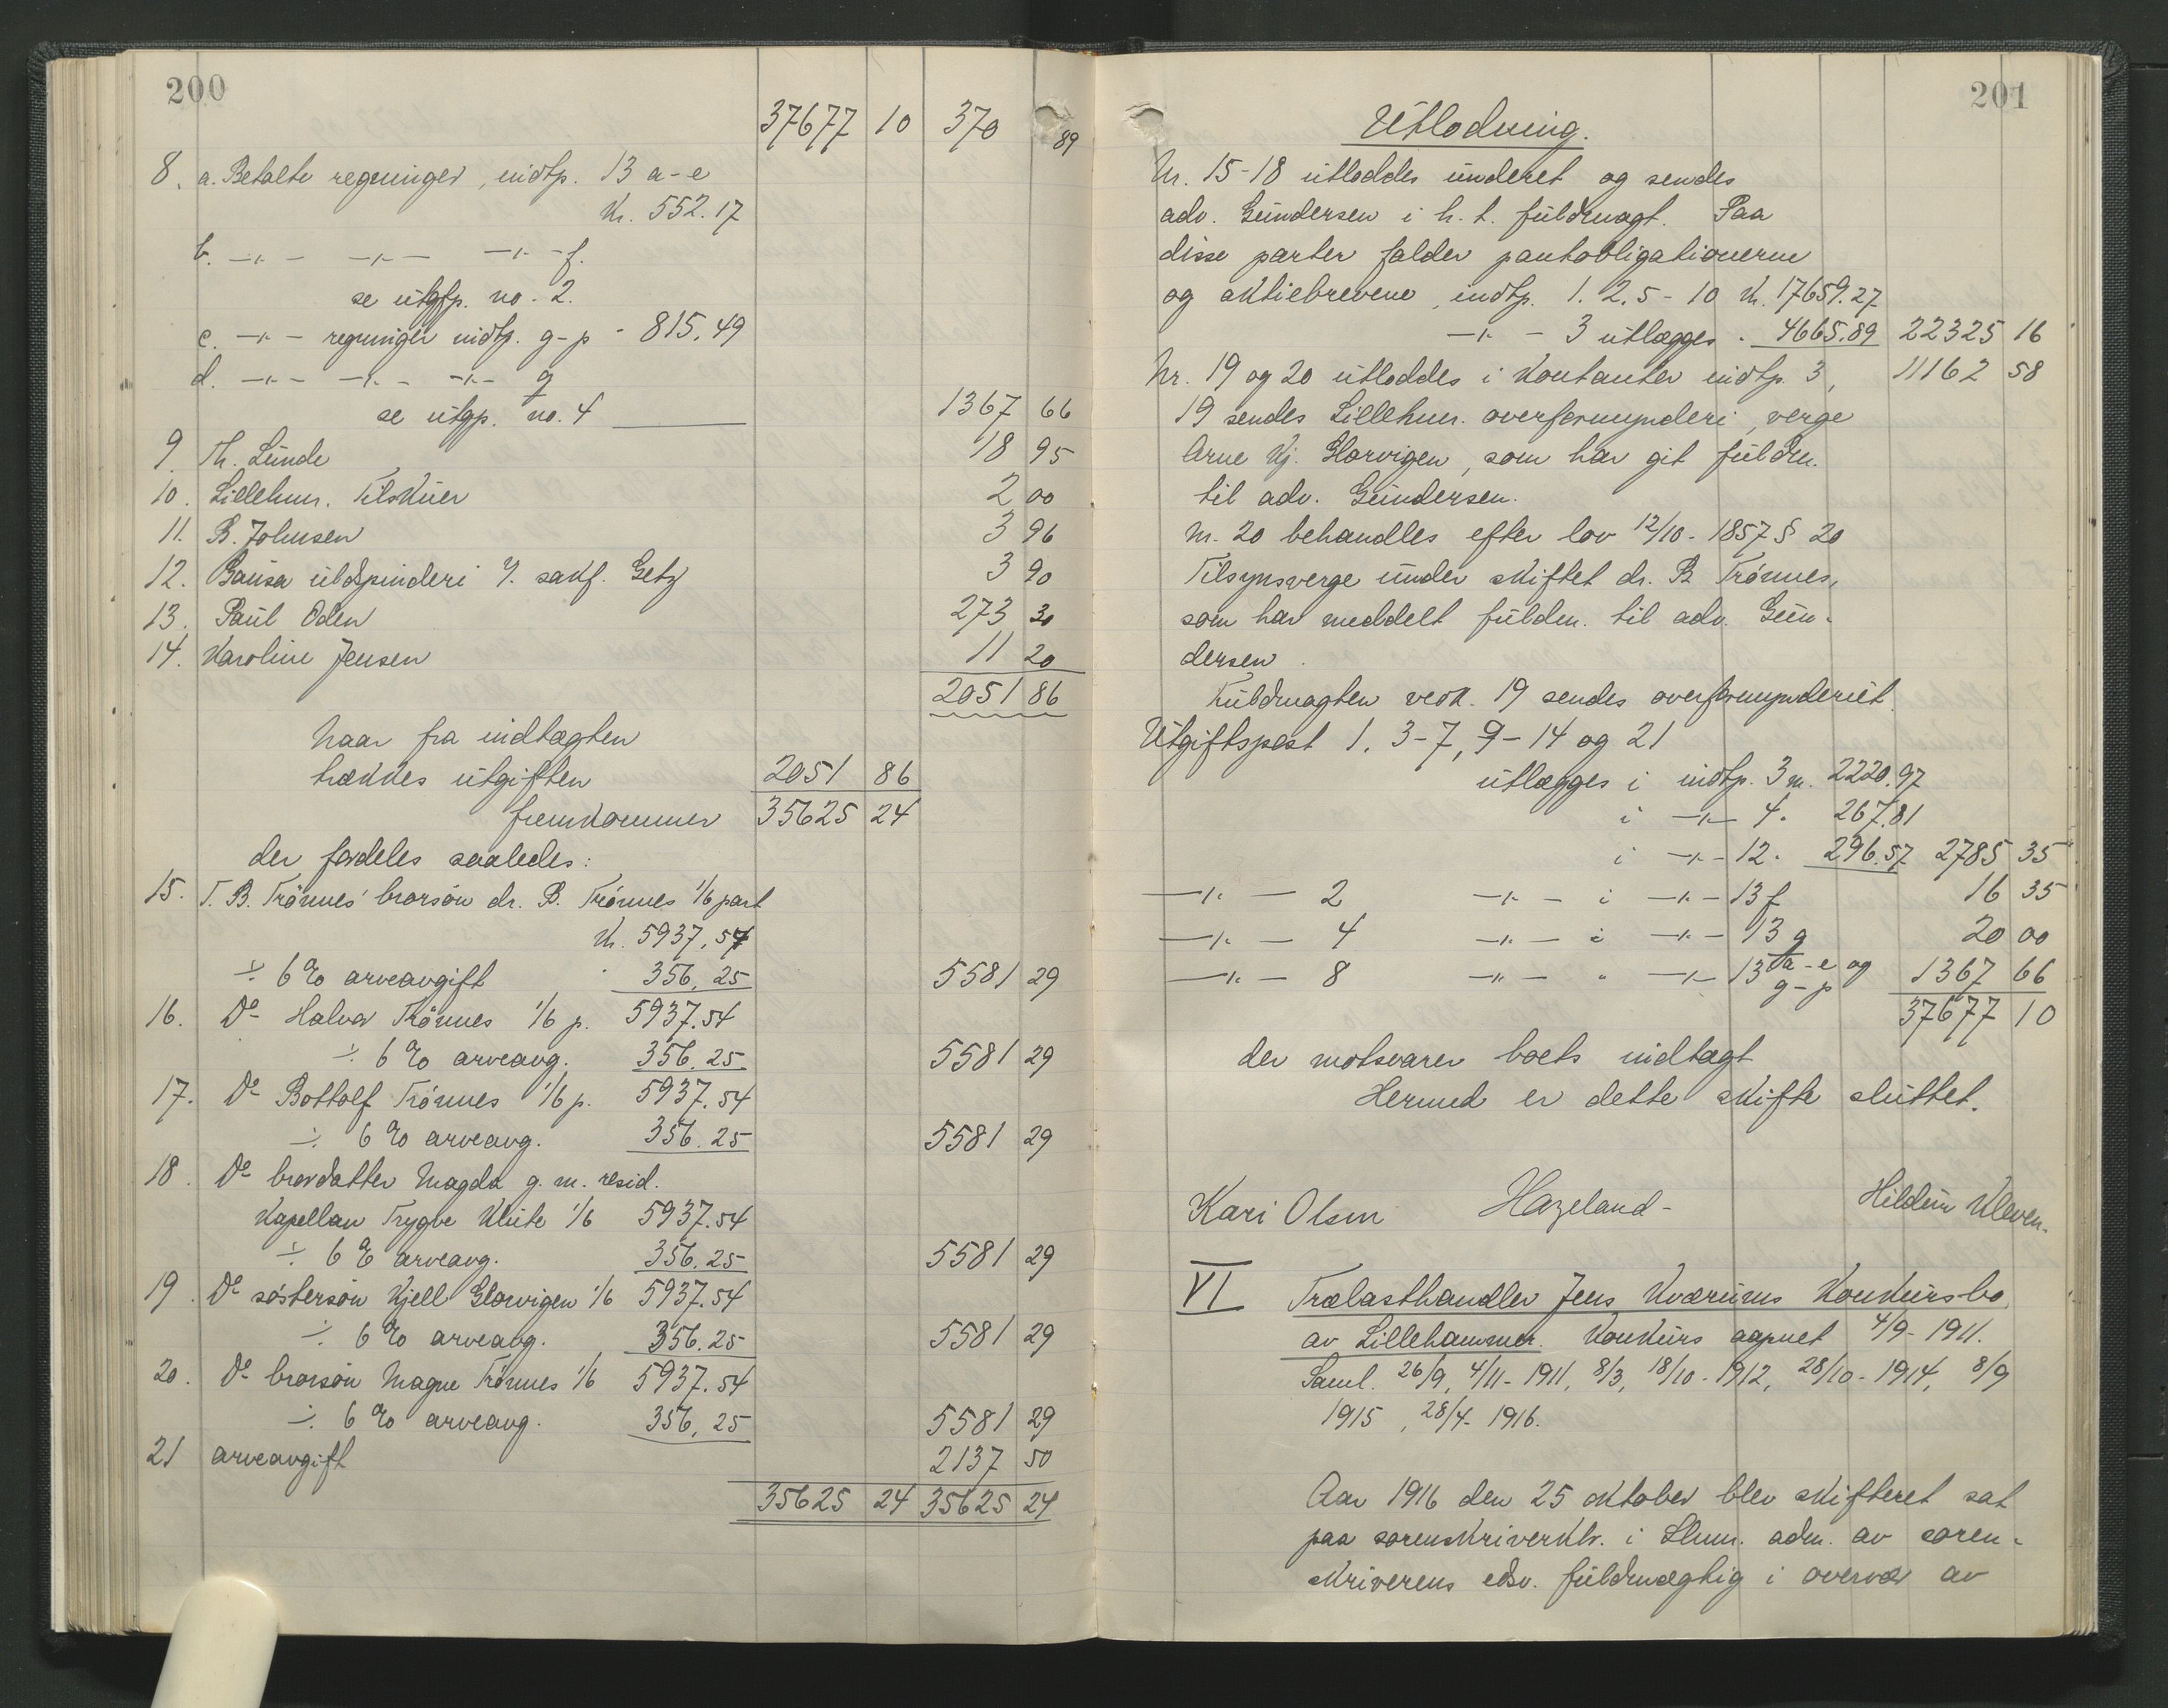 200
37677 10 370 89
8. a. Betalte regninger, indtp. 13 a-e
Kr. 552.17
b. -"- -"- -"- f.
se utgfp. no. 2.
c. -"- regninger indtp. g-p - 815.49
d. -"- -"- -"- q
se utgp. no. 4 1367 66
9. Th. Lunde 18 95
10. Lillehm. Tilskuer 2 00
11. B. Johnsen 3 96
12. Bausa uldspinderi v. sakf. Getz 3 90
13. Paul Oden 273 30
14. Karoline Jensen 11 20
2051 86
Naar fra indtægten
trækkes utgiften 2051 86
fremkommer 35625 24
der fordeles saaledes:
15. T. B. Trønnes' brorsøn dr. B. Trønnes 1/6 part
Kr. 5937.54
÷ 6 % arveavgift - 356.25 5581 29
16. Do Halvor Trønnes 1/6 p. 5937.54
÷ 6 % arveavg. 356.25 5581 29
17. Do Bottolf Trønnes 1/6 p. 5937.54
÷ 6 % arveavg. 356.25 5581 29
18. Do brordatter Magda g. m. resid.
kapellan Trygve Klüte 1/6 5937.54
÷ 6 % arveavg. 356.25 5581 29
19. Do søstersøn Kjell Glørvigen 1/6 5937.54
÷ 6 % arveavg. 356.25 5581 29
20. Do brorsøn Magne Trønnes 1/6 5937.54
÷ 6 % arveavg. 356.25 5581 29
21 arveavgift 2137 50
35625 24 35625 24
201
Utlodning.
Nr. 15-18 utloddes underet og sendes
adv. Gundersen i h. t. fuldmagt. Paa
disse parter falder pantobligationerne
og aktiebrevene, indtp. 1. 2. 5-10 Kr. 17659.27
-"- - 3 utlægges - 4665.89 22325 16
Nr. 19 og 20 utloddes i kontanter indtp. 3, 11162 58
19 sendes Lillehm. overformynderi, verge
Arne Kj. Glørvigen, som har git fuldm.
til adv. Gundersen.
Nr. 20 behandles efter lov 12/10-1857 § 20
Tilsynsverge under skiftet dr. B Trønnes,
som har meddelt fuldm. til adv. Gun-
dersen.
Fuldmagten vedk. 19 sendes overformynderiet.
Utgiftspost 1. 3-7, 9-14 og 21
utlægges i indtp. 3 kr. 2220.97
i -"- 4 - 267.81
i -"- 12 - 296.57 2785 35
-"- - 2 -"- - i -"- 13 f 16 35
-"- - 4 -"- - i -"- 13 q 20 00
-"- - 8 -"- - " -"- 13 a-e og g-p 1367 66
37677 10
der motsvarer boets indtægt
Hermed er dette skifte sluttet.
Kari Olsen Hazeland- Hildur Kleven.
VI Trælasthandler Jens Kværums Konkursbo
av Lillehammer. Konkurs aapnet 4/9-1911.
Saml. 26/9, 4/11-1911, 8/3, 18/10-1912, 28/10-1914, 8/9
1915, 28/4-1916.
Aar 1916 den 25 oktober blev skifteret sat
paa sorenskriverktr. i Lhmr. adm. av soren-
skriverens edsv. fuldmægtig i overvær av